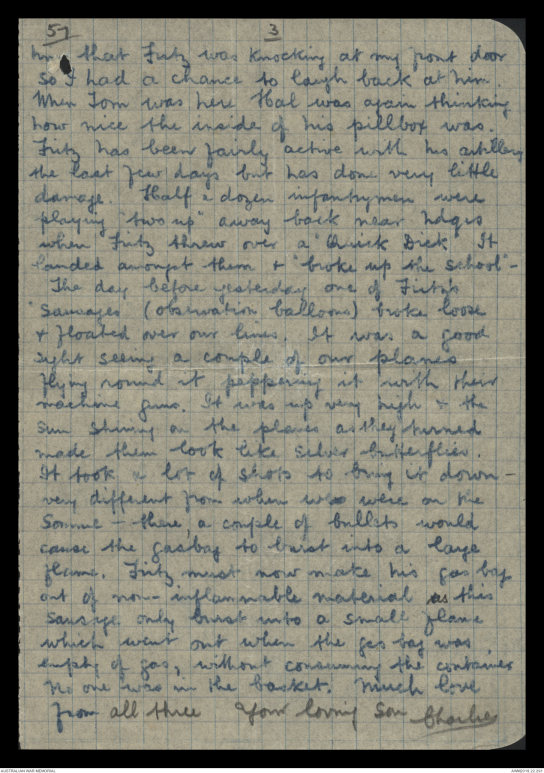 57 3
him that Fritz was knocking at my front door
so I had a chance to laugh back at him.
When Tom was here Hal was again thinking
how nice the inside of his pillbox was.
Fritz has been fairly active with his artillery
the last few days but has done very little
damage. Half a dozen infantrymen were
playing "two up" away back near hdqrs
when Fritz threw over a "Quick Dick. It
landed amongst them + "broke up the school" -
The day before yesterday one of Fritz's
"Sausages (observation balloons) broke loose
+ floated over our lines. It was a good
sight seeing a couple of our planes
flying round it peppering it with their
machine guns. It was up very high + the
sun shining on the planes as they turned
made them look like silver butterflies.
It took a lot of shots to bring it down -
very different from when we were on the
Somme - there, a couple of bullets would
cause the gasbag to burst into a large
flame. Fritz must now make his gas bags
out of non-inflammable material as this
sausage only burst into a small flame
which went out when the gas bag was
empty of gas, without consuming the container
No one was in the basket. Much love
from all three Your loving Son Charlie
AUSTRALIAN WAR MEMORIAL